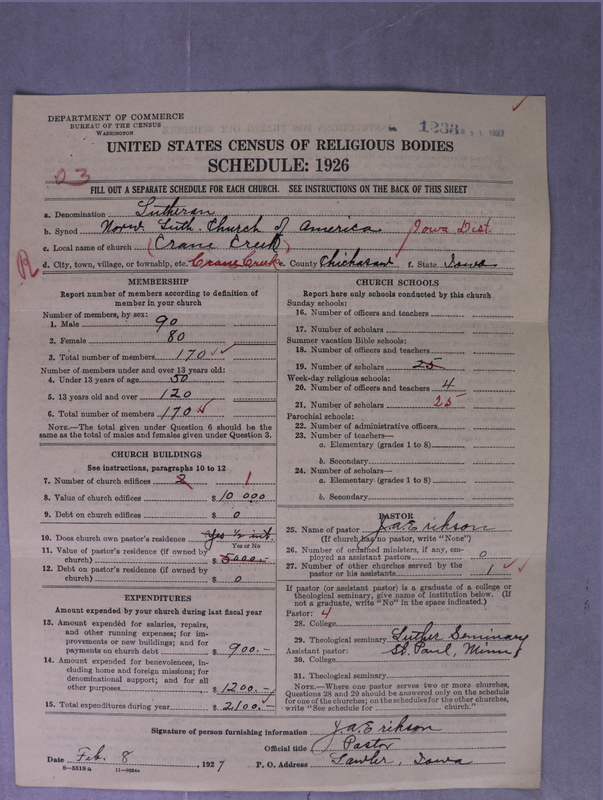 DEPARTMENT OF COMMERCE
BUREAU OF THE CENSUS
WASHINGTON
UNITED STATES CENSUS OF RELIGIOUS BODIES
SCHEDULE: 1926
03
FILL OUT A SEPARATE SCHEDULE FOR EACH CHURCH. SEE INSTRUCTIONS ON THE BACK OF THIS SHEET
a. Denomination Lutheran
b. Synod Norw. Luth. Church of America Iowa Dist.
c. Local name of church (Crane Creek)
d. City, town, village, or township, etc. Crane Creek e. County Chickasaw f. State Iowa
R
MEMBERSHIP
Report number of members according to definition of
member in your church
Number of members, by sex:
1. Male 90
2. Female 80
3. Total number of members 170
Number of members under and over 13 years old:
4. Under 13 years of age 50
5. 13 years old and over 120
6. Total number of members 170
NOTE.—The total given under Question 6 should be the
same as the total of males and females given under Question 3.
CHURCH BUILDINGS
See instructions, paragraphs 10 to 12
7. Number of church edifices 2 1
8. Value of church edifices $10 000
9. Debt on church edifices $ 0
10. Does church own pastor's residence Yes 1/2 int.
Yes or No
11. Value of pastor's residence (if owned by
church) $ 5000.-
12. Debt on pastor's residence (if owned by
church) $ 0
EXPENDITURES
Amount expended by your church during last fiscal year
13. Amount expended for salaries, repairs,
and other running expenses; for im-
provements or new buildings; and for
payments on church debt $ 900.-
14. Amount expended for benevolences, in-
cluding home and foreign missions; for
denominational support; and for all
other purposes $ 1200.-
15. Total expenditures during year $ 2100.-
CHURCH SCHOOLS
Report here only schools conducted by this church
Sunday schools:
16. Number of officers and teachers
17. Number of scholars
Summer vacation Bible schools:
18. Number of officers and teachers
19. Number of scholars 25
Week-day religious schools:
20. Number of officers and teachers 4
21. Number of scholars 25
Parochial schools:
22. Number of administrative officers
23. Number of teachers—
a. Elementary (grades 1 to 8)
b. Secondary
24. Number of scholars—
a. Elementary (grades 1 to 8)
b. Secondary
PASTOR
25. Name of pastor J. A. Erikson
(If church has no pastor, write "None")
26. Number of ordained ministers, if any, em-
ployed as assistant pastors 0
27. Number of other churches served by the
pastor or his assistants 1
If pastor (or assistant pastor) is a graduate of a college or
theological seminary, give name of institution below. (If
not a graduate, write "No" in the space indicated.)
Pastor: 4
28. College
29. Theological seminary Luther Seminary
Assistant pastor: St. Paul, Minn
30. College
31. Theological seminary
NOTE.—Where one pastor serves two or more churches,
Questions 28 and 29 should be answered only on the schedule
for one of the churches; on the schedules for the other churches,
write "See schedule for church."
Signature of person furnishing information J. A. Erikson
Official title Pastor
Date Feb. 8, 1927 P. O. Address Lawler, Iowa